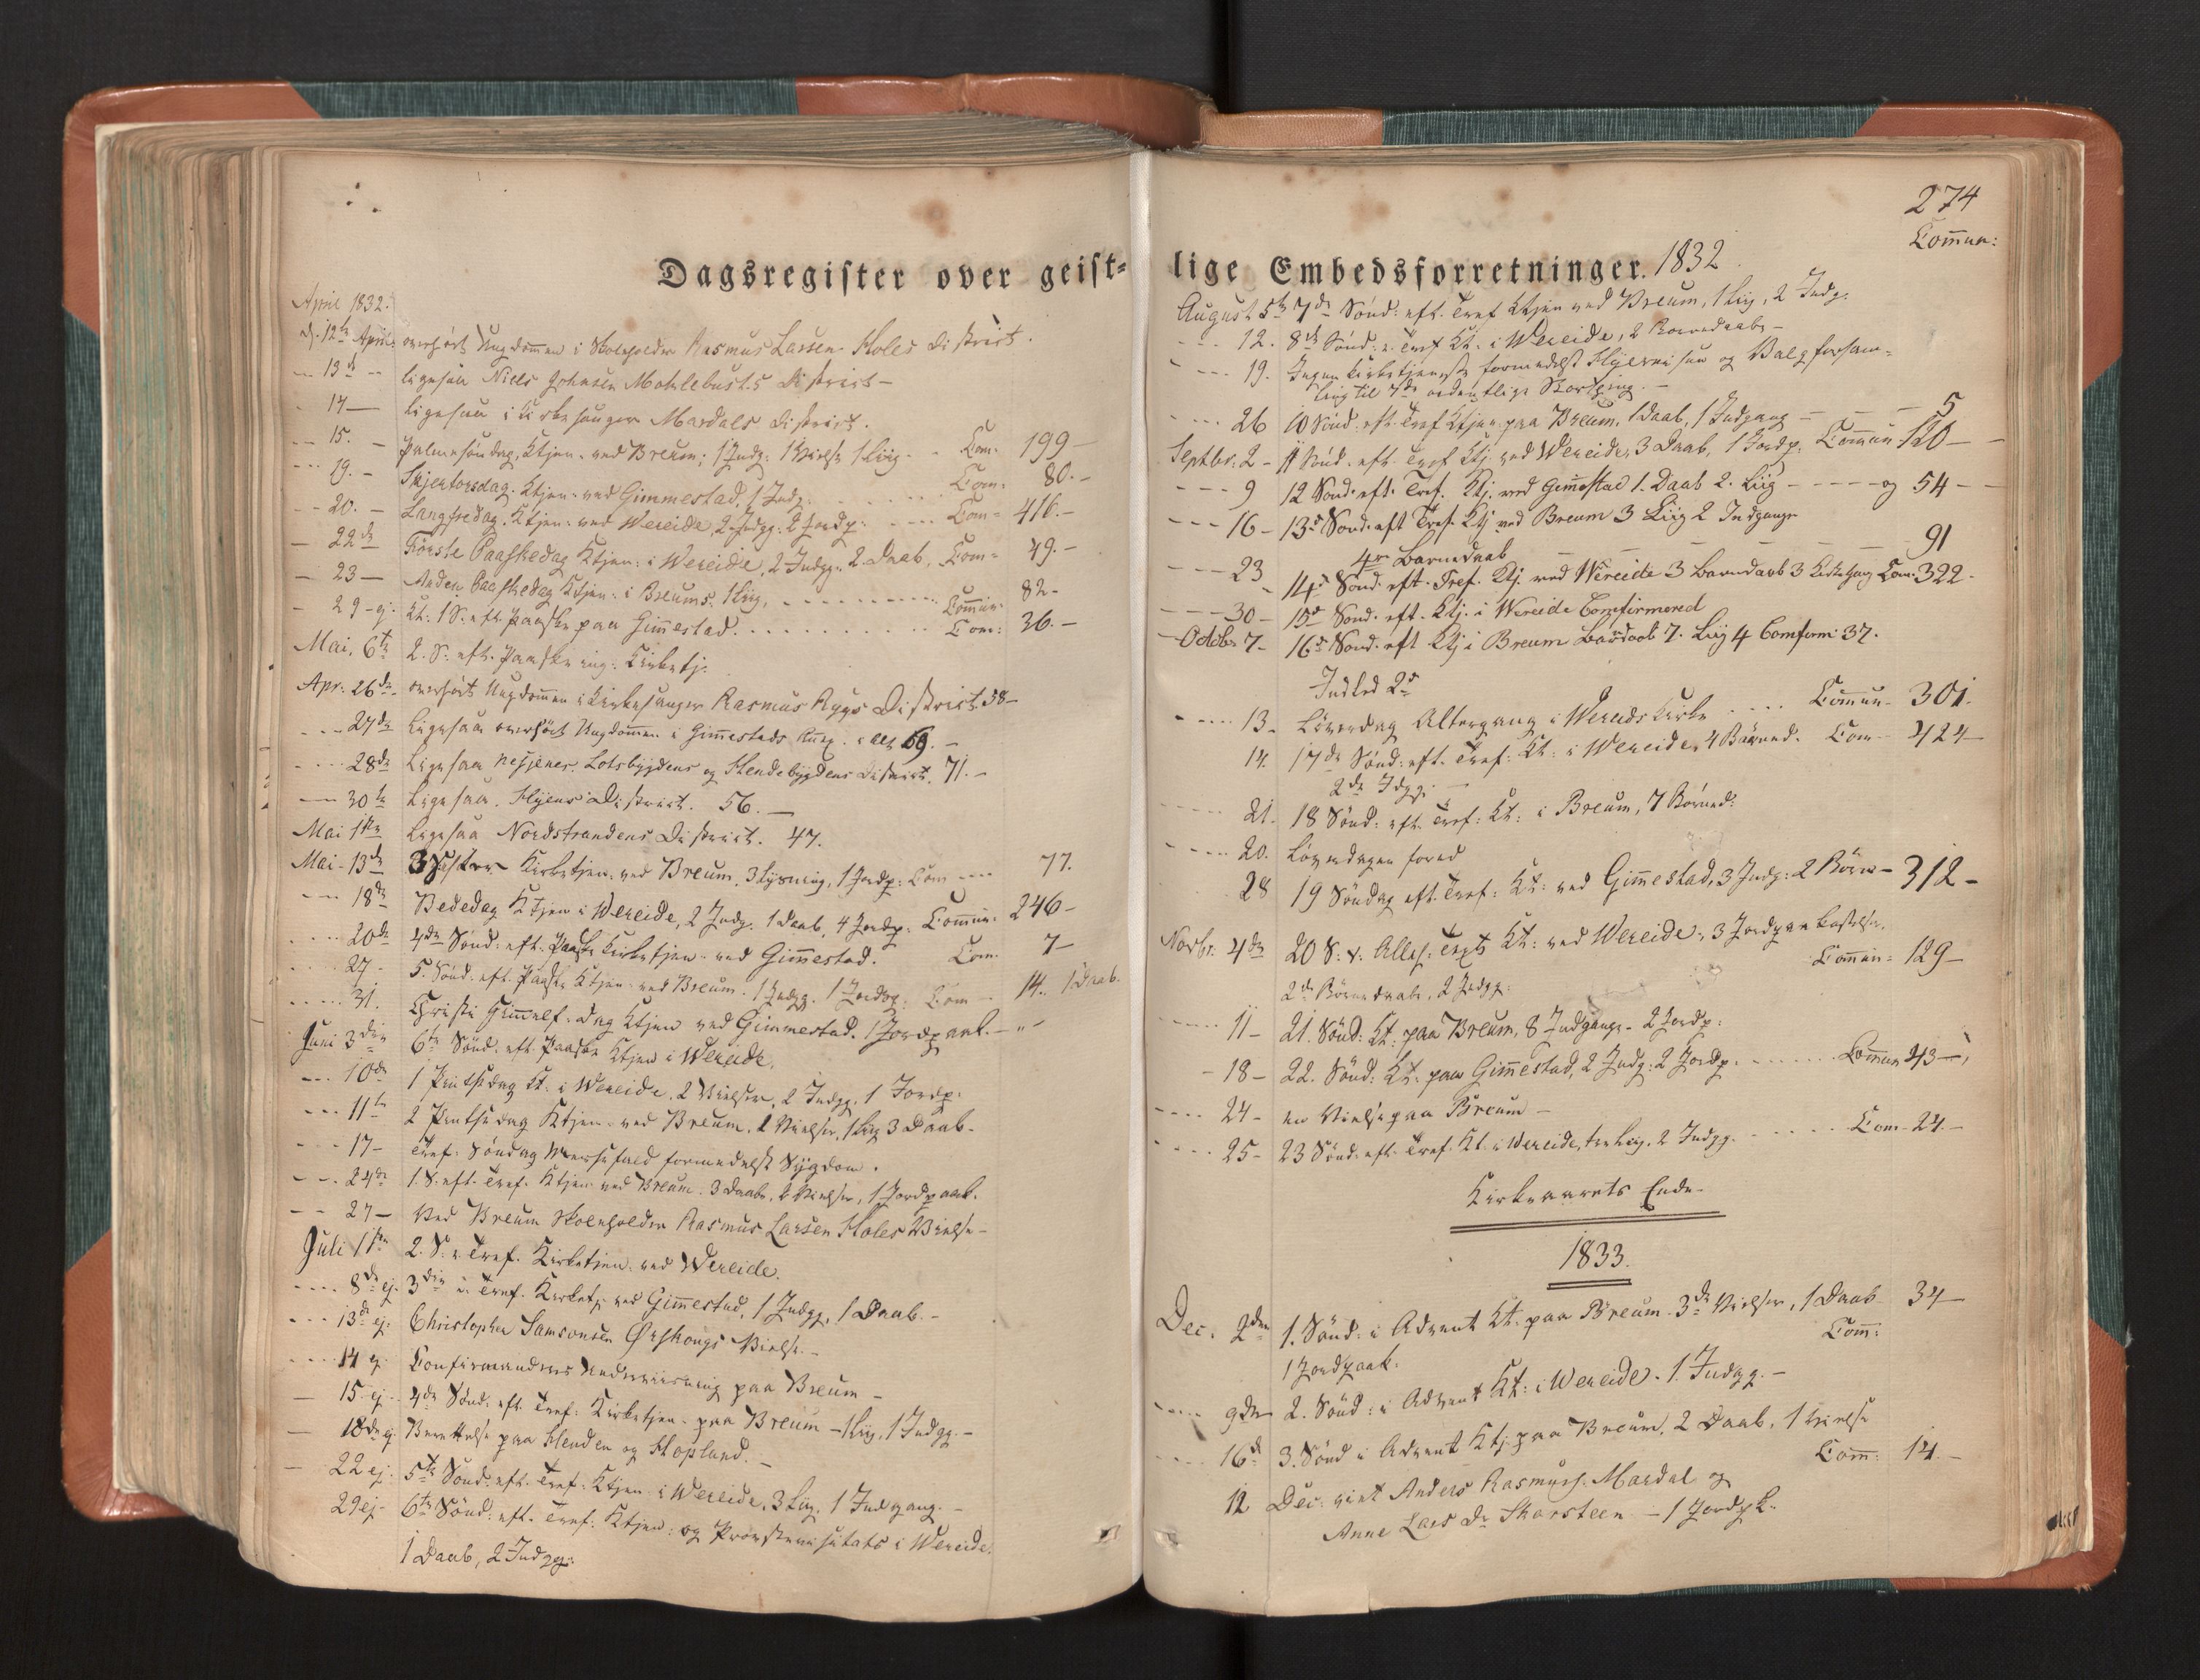 Dagsregister over geist-
April 1832.
d. 12te April overhört Ungdommen i Skoleholder Rasmus Larsen Holes District.
— 13de — ligesaa Niels Johnsen Moklebusts District —
— 14 — ligesaa i Kirkesanger Mardals District.
— 15. — Palmesöndag, Ktjen. ved Breum; 1 Indg. 1 Vielse 1 Liig. Com: 199 —
— 19. — Skjertorsdag. Ktjen. ved Gimmestad, 1 Indg. Com: 80. —
— 20. — Langfredag. Ktjen: ved Wereide, 2 Indgg. 2 Jordp. Com- 416. —
— 22de Förste Paaskedag Ktjen: i Wereide, 2 Indgg. 2 Daab, Com- 49. —
— 23 — Anden Paaskedag Ktjen: i Breums. 1 Liig, Commun: 82 -
— 29 - ej. Kt. 1 S. eft. Paaske paa Gimestad. Com: 36. —
Mai, 6te 2. S. eft. Paaske ing. Kirketj.
Apr. 26de overhört Ungdommen i Kirkesanger Rasmus Rygs District 58 —
— 27de Ligesaa overhört Ungdommen i Gimestads 69. —
— 28de Ligesaa Nesjenes, Lotsbygdens og Hendebygdens District. 71. —
— 30te Ligesaa. Hyens District. 56. —
Mai 1ste Ligesaa Nordstrandens District. 47.
Mai - 13de 3 Kirketjen. ved Breum, 3 Lysning, 1 Jordp: Com — 77.
— 18de Bededag Ktjen i Wereide, 2 Indg. 1 Daab, 4 Jordp. Commun: 246 —
20de 4de Sönd. eft. Paaske Kirketjen. ved Gimestad. Com. 7 —
27 - 5. Sönd. eft. Paaske Ktjen. ved Breum. 1 Indgg. 1 Jordp. Com — 14. 1 Daab.
31. Christi Himmelf. dag Ktjen ved Gimmestad. 1 Jordpaak. — " —
Juni 3die 6te Sönd. eft. Paaske Ktjen i Wereide.
— 10de 1 Pintsedag Kt. i Wereide. 2 Vielser, 2 Indgg. 1 Jordp.
— 11te 2 Pintsedag Ktjen. ved Breum. 2 Vielser, 1 Liig 3 Daab.
— 17 — Tref. Söndag Messefald formedelst Sygdom.
— 24de 1. S. eft. Tref. Ktjen. ved Breum. 3 Daab, 2 Vielser, 1 Jordpaak.
— 27 — Ved Breum Skoleholder Rasmus Larsen Holes Vielse —
Juli 1ste 2. S. e. Tref. Kirketjen. ved Wereide.
— 8de ej. 3die e. Tref. Kirketj. ved Gimestad, 1 Indgg, 1 Daab. —
— 13de ej. Christopher Samsonsen Ørskougs Vielse. —
— 14 ej. Confirmanders Underviisning paa Breum —
— 15 ej. 4de Sönd. eft. Tref. Kirketjen. paa Breum — 1 Liig, 1 Indgg. —
— 18de ej Berettelse paa Henden og Hopland. —
— 22 ej. 5te Sönd. eft. Tref. Ktjen i Wereide, 3 Liig. 1 Indgang. —
29 ej. 6te Sönd. eft. Tref. Ktjen. og Provstevisitats i Wereide.
1 Daab, 2 Indgg.
274
lige Embedsforretninger. 1832
Commun:
August 5te 7de Sönd: eft. Tref Ktjen ved Breum, 1 Liig, 2 Indg.
— 12. 8de Sönd: e. Tref Kt. i Wereide, 2 Barnedaab —
— 19. Ingen Kirketjeneste formedelst Hjemreisen og Valgforsam-
ling til 7de ordentlige Storthing. —
— 26 10 Sönd. eft. Tref Ktjen paa Breum, 1 Daab, 1 Indgang — 5
Septbr. 2 - 11 Sönd. eft. Tref Ktj. ved Wereide, 3 Daab, 1 Jordp. Commun 120 —
— 9 12 Sönd. eft. Tref. Ktj. ved Gimestad 1. Daab 2. Liig — og 54 —
— 16 - 13d Sönd. eft Tref. Ktj ved Breum 3 Liig 2 Indgange
4re Barnedaab 91
— 23 14d Sönd. eft. Tref. Ktj. ved Wereide 3 Barnedaab 3 Kirkegang Com: 322 -
— 30 - 15d Sönd. eft. Ktj. i Wereide Comfirmered
Octobr 7 - 16d Sönd. eft Ktj i Breum Barndaab 7. Liig 4 Comfirm: 37.
Indled 2d
— 13. Löverdag Altergang i Wereids Kirke Commun - 301.
14. 17de Sönd: eft. Tref: Kt: i Wereide, 4 Barned. Com — 424
2de Idgg:
— 21. 18 Sönd: eft. Tref: Kt: i Breum, 7 Börned:
— 20. Löverdagen forud
28 19 Söndag eft. Tref: Kt: ved Gimestad, 3 Indg: 2 Börn — 312 —
Novbr. 4de 20 S. e. Tref Kt: ved Wereide, 3 Jordpaakastelser.
2de Börnedaab, 2 Indgg: Commun: 129 —
— 11 — 21. Sönd: Kt. paa Breum, 8 Indgange - 2 Jordp:
— 18 — 22. Sönd: Kt: paa Gimestad, 2 Indg: 2 Jordp. Commun 43 —
— 24 — en Vielse paa Breum —
— 25 — 23 Sönd. eft. Tref. Kt. i Wereide, tre Liig, 2 Indgg. Com - 24. —
Kirkeaarets Ende.
1833.
Dec: 2den 1. Sönd: i Advent Kt: paa Breum. 3de Vielser, 1 Daab 34 —
1 Jordpaak. Com:
— 9de 2. Sönd: i Advent Kt: i Wereide. 1. Indgg. —
— 16d 3. Sönd i Advent Ktj. paa Breum, 2 Daab, 1 Vielse
Com: 14. —
12 Dec: viet Anders Rasmuss. Mardal og
Anne Lars Dr Skarsteen — 1 Jordpk.